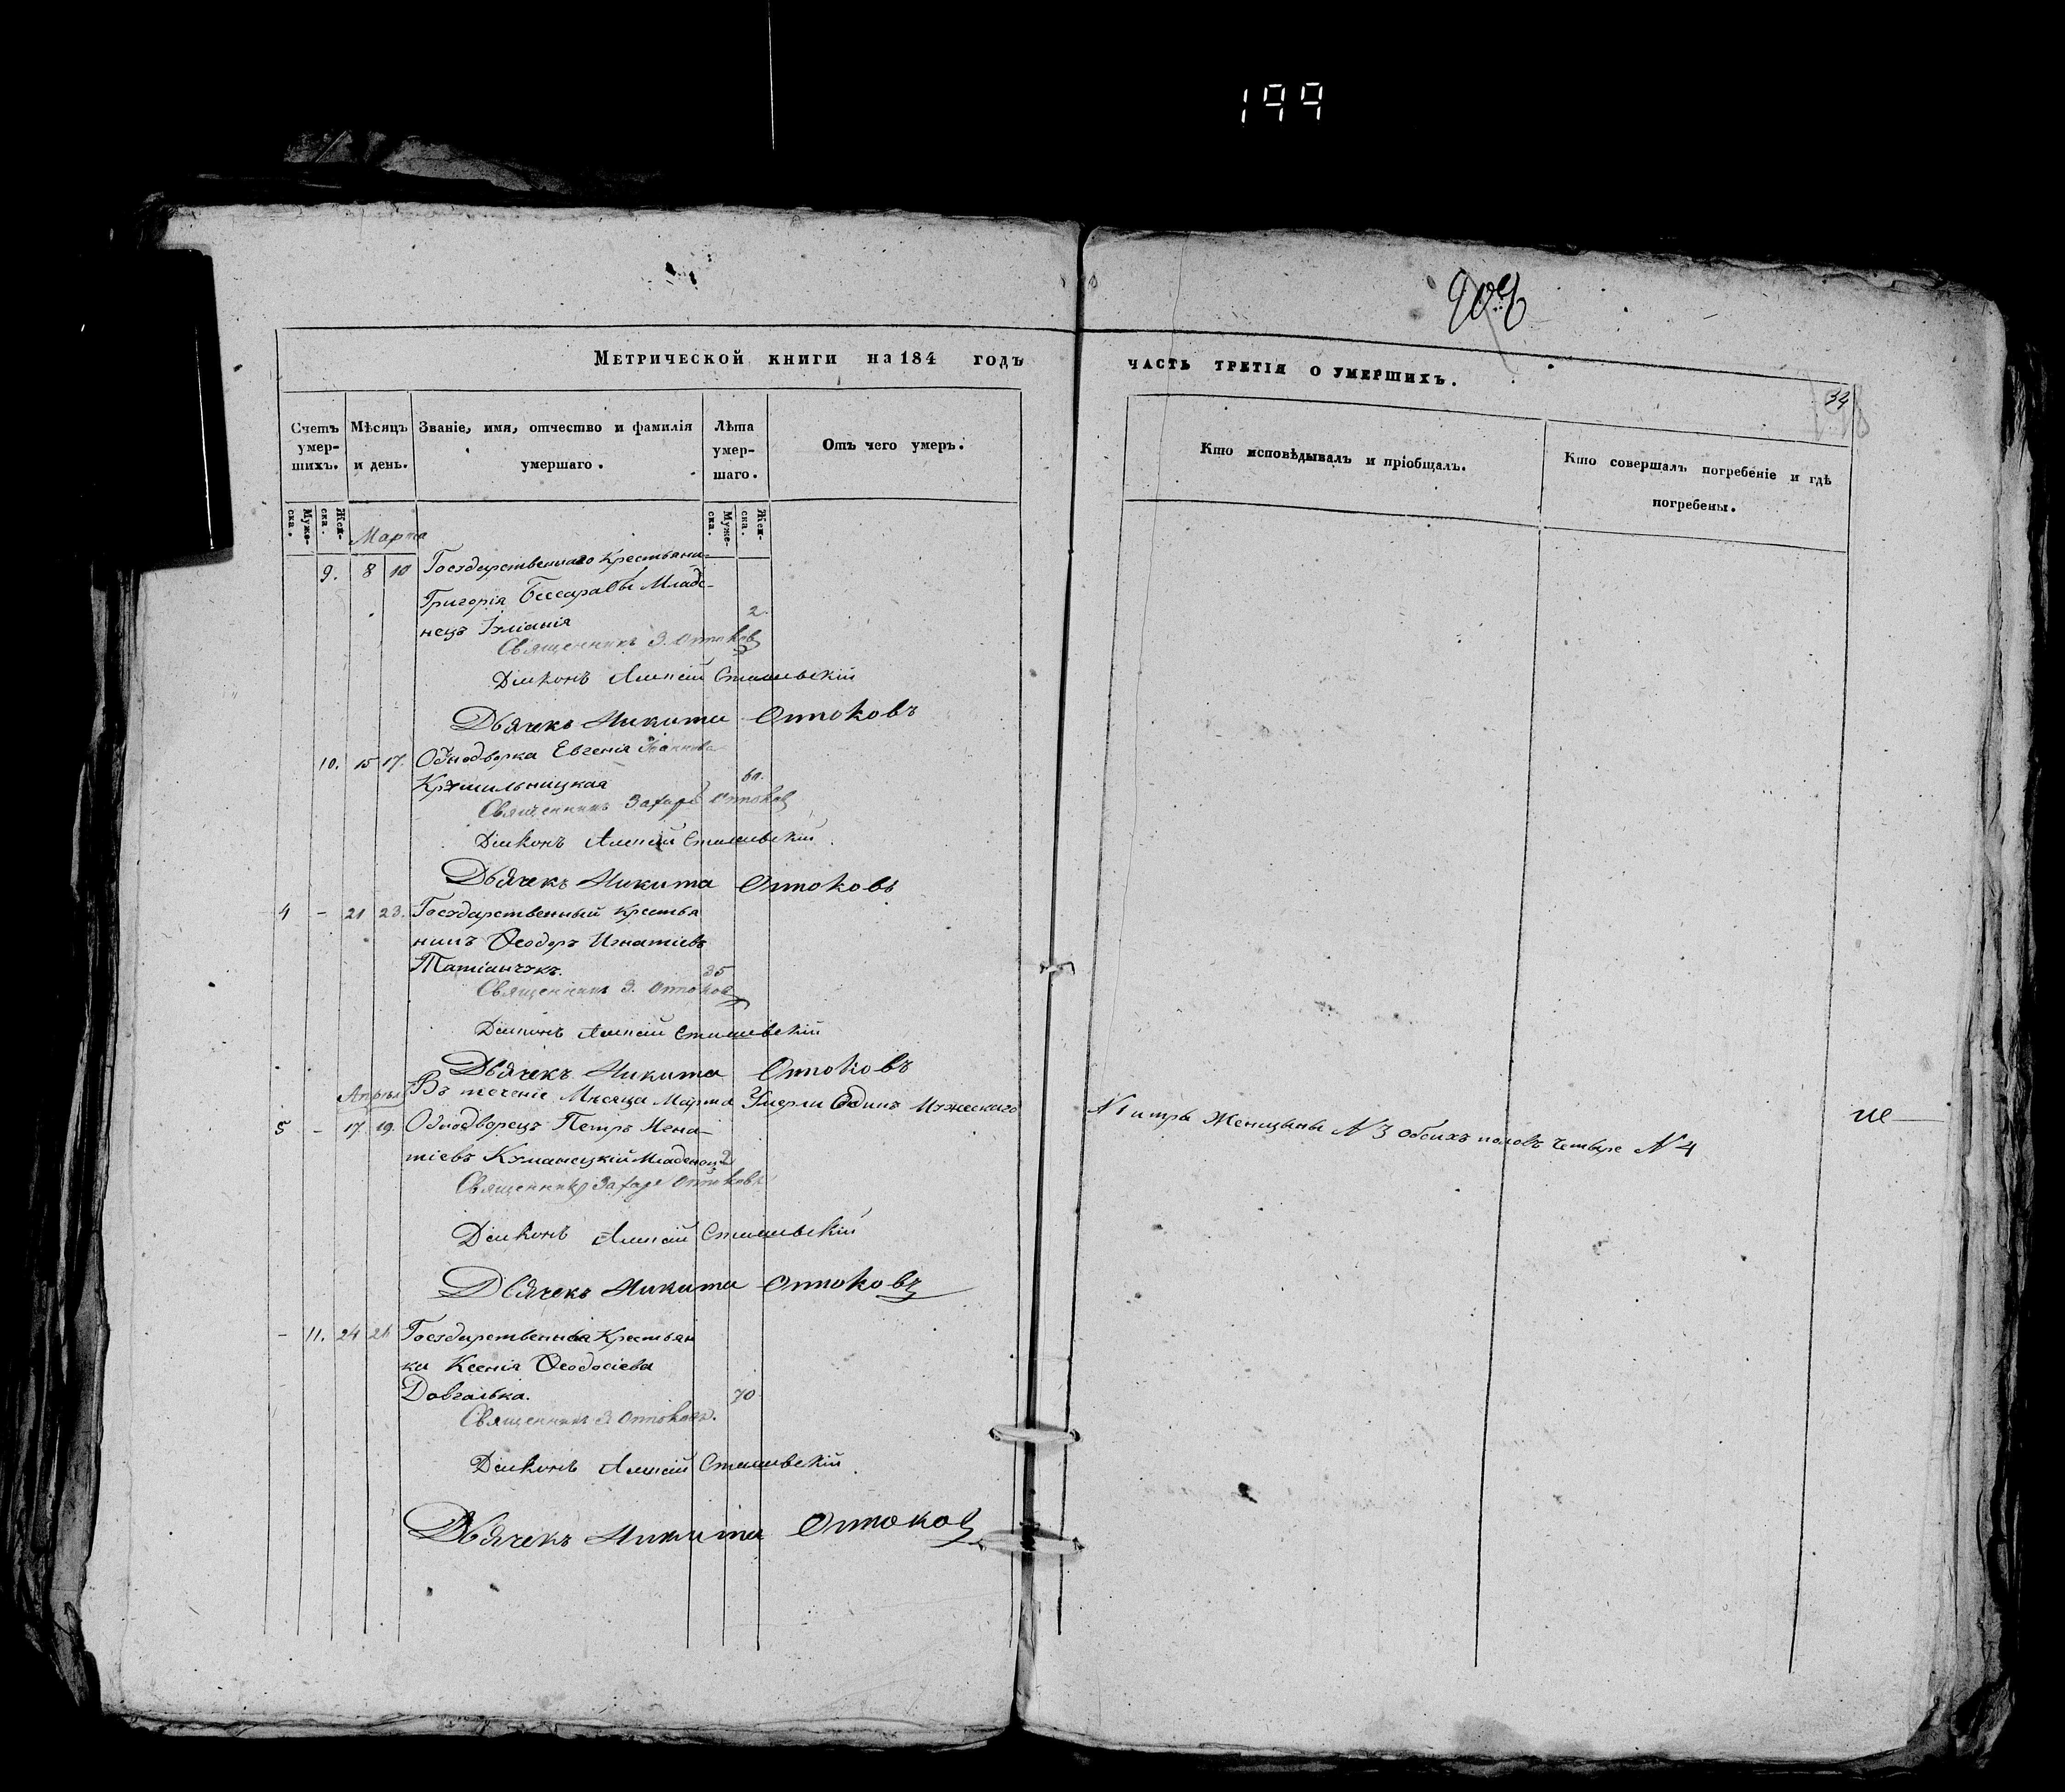 199
909
Метрической книги на 184 годъ
часть третія о умершихъ.
34
Счетъ умер-шихъ.
Мѣсяцъ и день.
Званіе, имя, отчество и фамилія умершаго.
Лѣта умер-шаго.
Отъ чего умеръ.
Кто исповѣдывалъ и пріобщалъ.
Кто совершалъ погребеніе и гдѣ погребены.
Муже-ска.
Жен-ска.
Муже-ска.
Жен-ска.
Марта
9. 8 10 Государственнаго Крестьяни-
Григорія Бессарабы Младе-
нецъ Іуліанія 2.
Священникъ З. Оттоковъ
Діаконъ Алексій
Дьячекъ Никита Оттоковъ
10. 15 17. Однодворка Евгенія Іоаннова
Крушильницкая 60.
Священникъ Захарій Оттоковъ
Діаконъ Алексій
Дьячекъ Никита Оттоковъ
4 - 21 23. Государственный крестья
нинъ Ѳеодоръ Игнатіевъ
Татіанчукъ. 35
Священникъ З. Оттоковъ
Діаконъ Алексій
Дьячекъ Никита Оттоковъ
Въ теченіе Мѣсяца Марта Умерли Одинъ Мужескаго
N 1 и три Женщины N 3 обоихъ половъ Четыре N 4
Апрѣль
5 - 17. 19. Однодворецъ Петръ Игна-
тіевъ Куманецкій Младенец 2
Священникъ Захарій Оттоковъ
Діаконъ Алексій
Дьячекъ Никита Оттоковъ
- 11. 24 26 Государственная Крестьян
ка Ксенія Ѳеодосіева
Довгалька. 70
Священникъ З. Оттоковъ.
Діаконъ Алексій
Дьячекъ Никита Оттоковъ